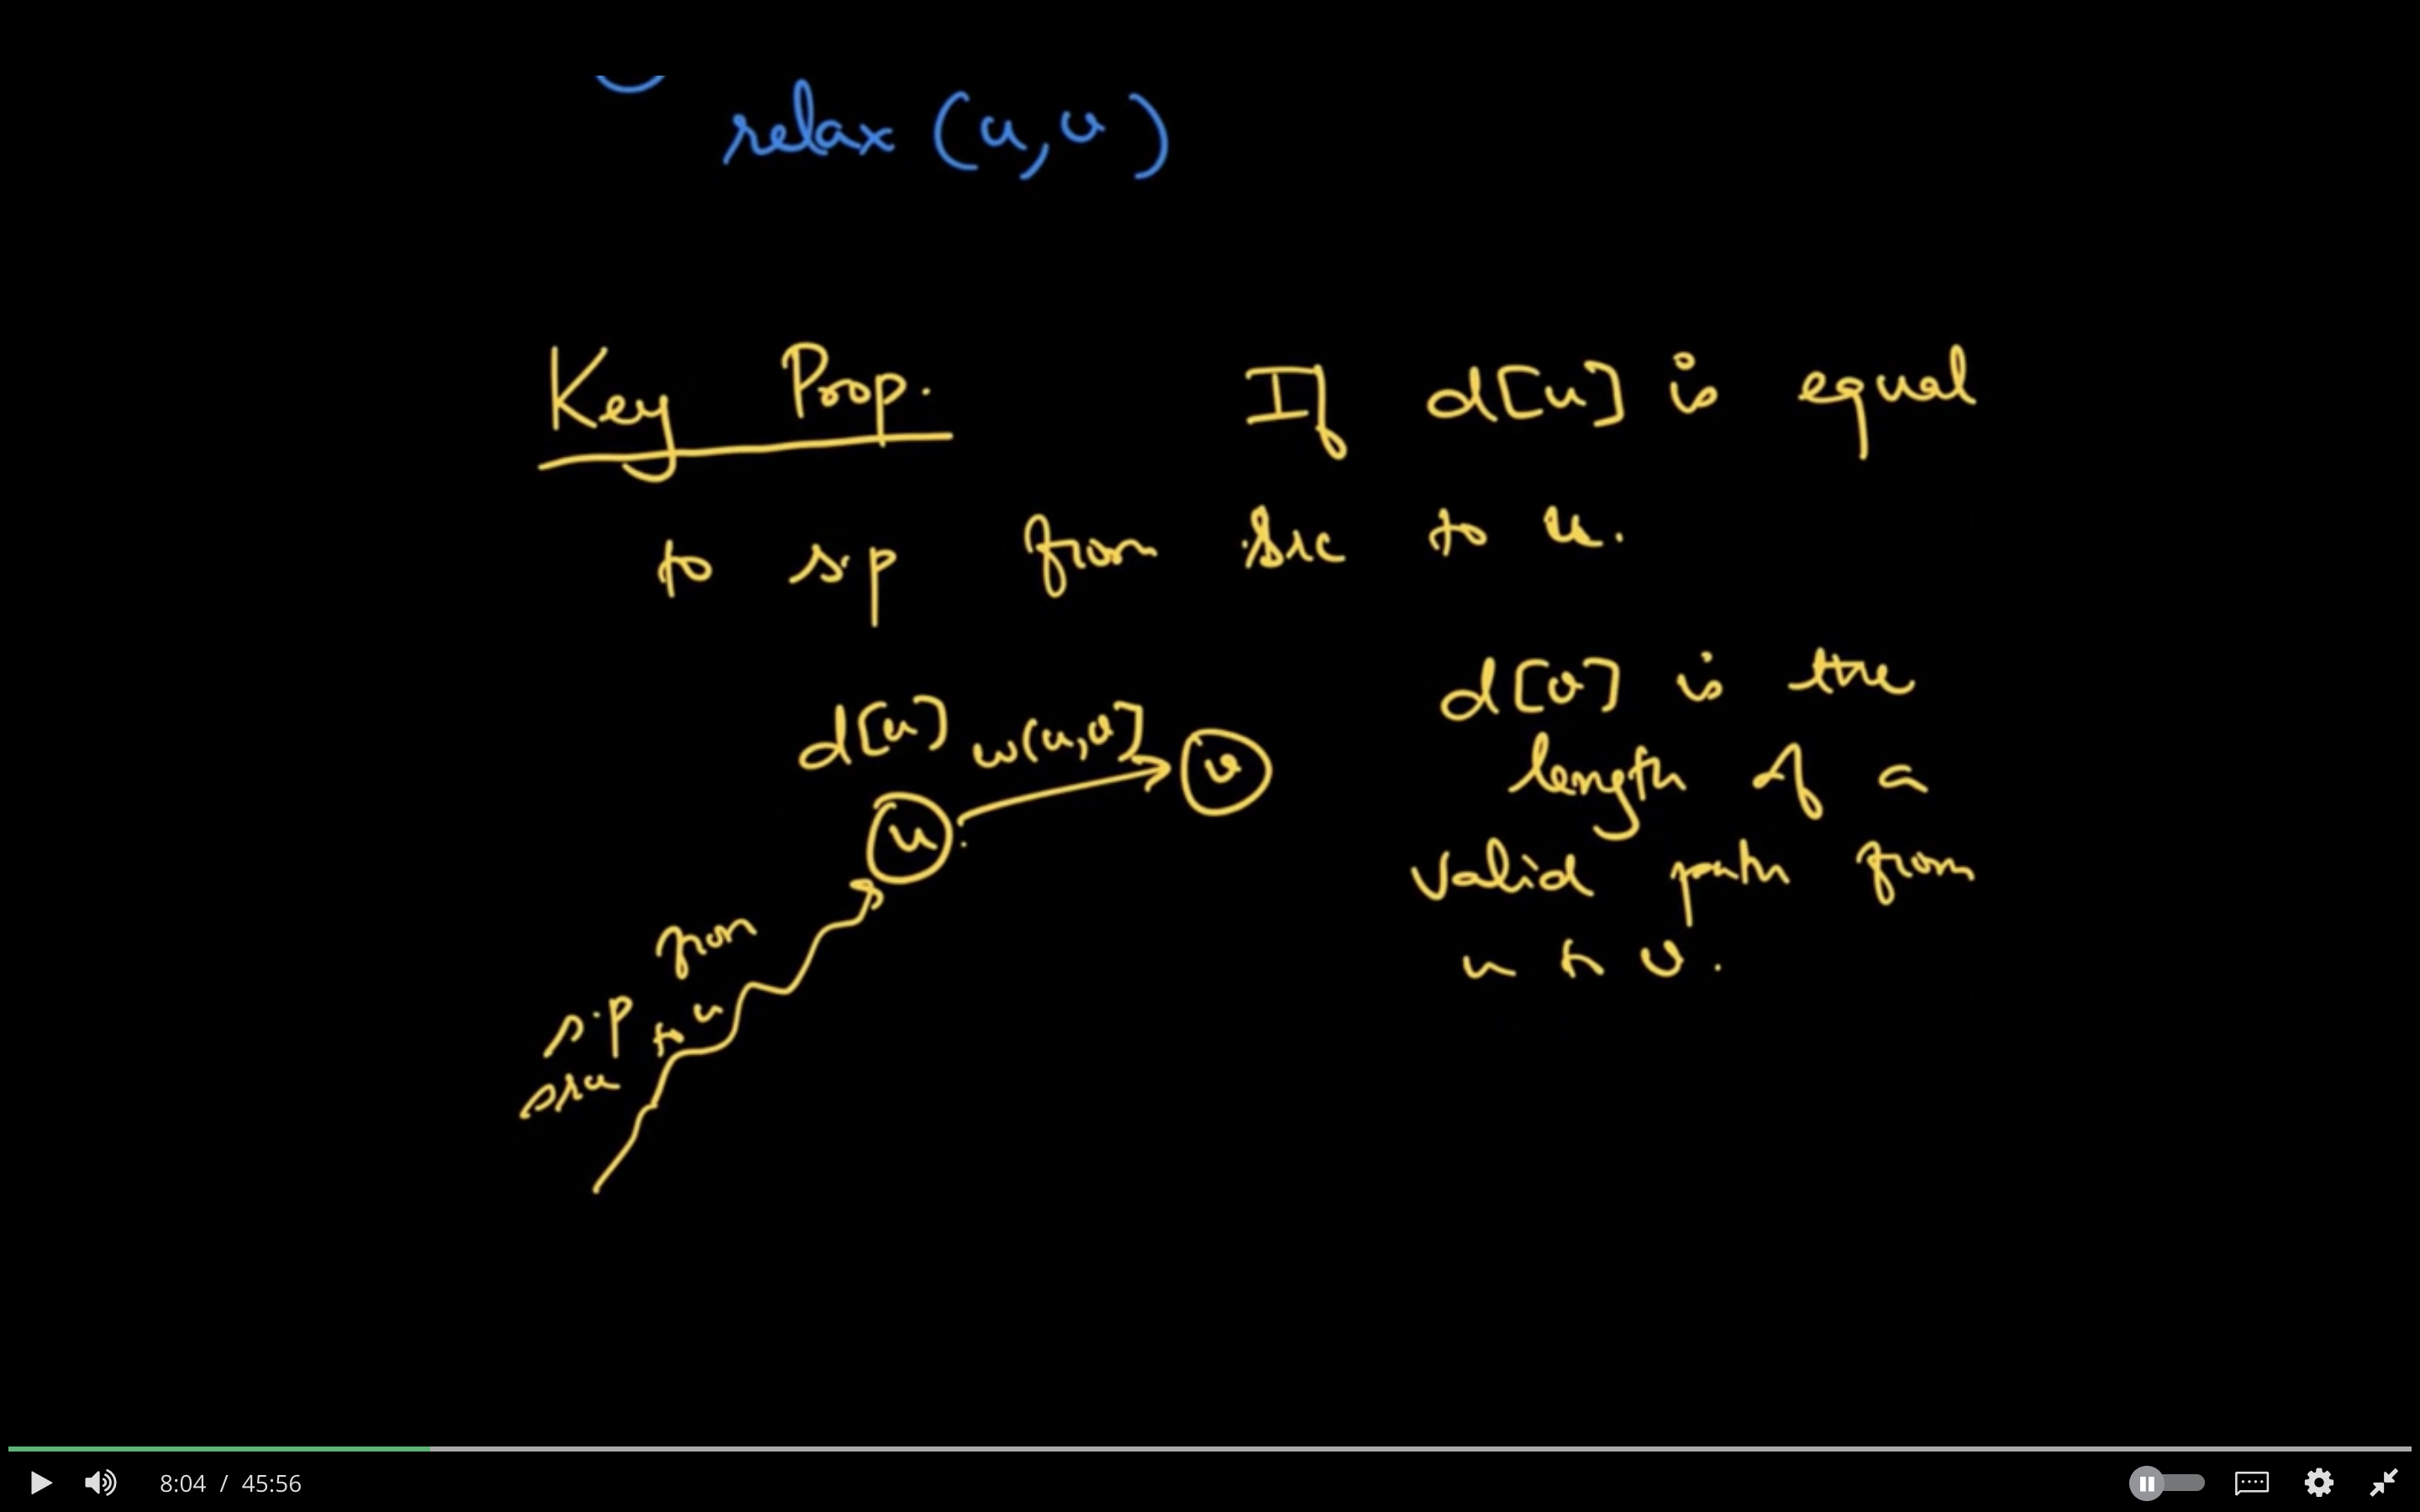 relax (u,v)
Key Prop. If d[u] is equal
to s.p from src to u.
d[u] w(u,v]
v
u
s.p from
src to u
d[v] is the
length of a
valid path from
u to v.
8:04 / 45:56